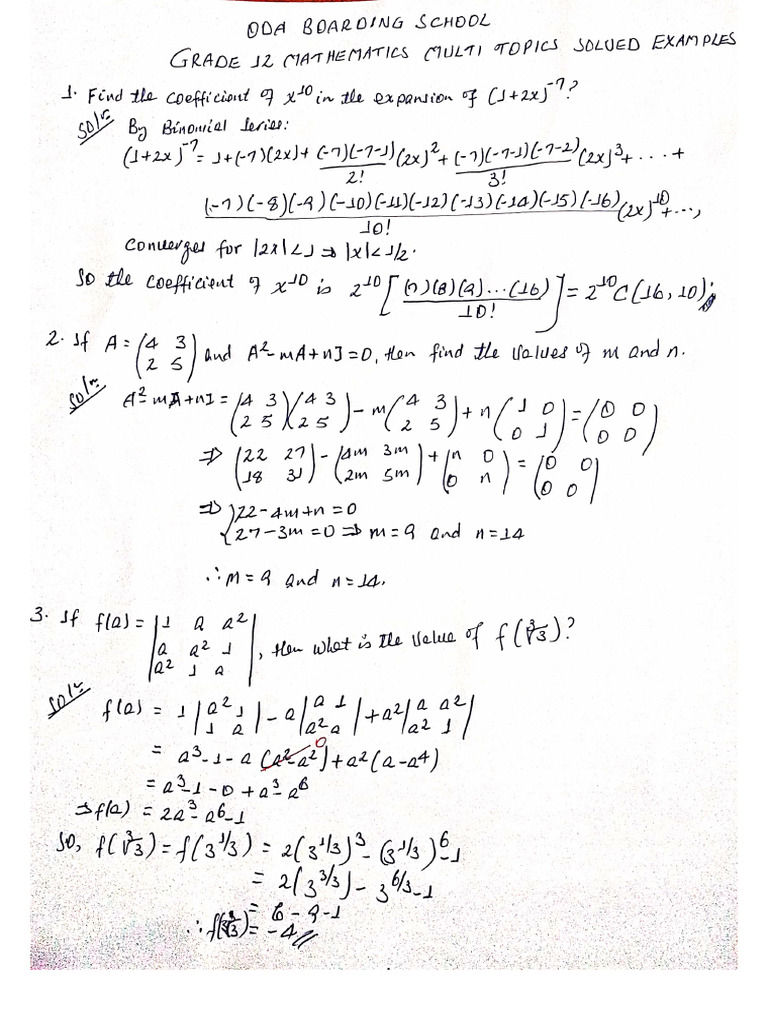 ODA BOARDING SCHOOL
GRADE 12 MATHEMATICS MULTI TOPICS SOLVED EXAMPLES
1. Find the coefficient of x^10 in the expansion of (1+2x)^-7?
Soln
By Binomial series:
(1+2x)^-7 = 1+(-7)(2x)+ (-7)(-7-1)/2! (2x)^2 + (-7)(-7-1)(-7-2)/3! (2x)^3 + . . . . +
(-7)(-8)(-9)(-10)(-11)(-12)(-13)(-14)(-15)(-16)/10! (2x)^10 + ...,
Converges for |2x|<1 ⇒ |x|<1/2.
So the coefficient of x^10 is 2^10 [(7)(8)(9)...(16)/10!] = 2^10 C(16, 10).
2. If A = (4 3; 2 5) and A^2 - mA + nI = 0, then find the values of m and n.
Soln
A^2 - mA + nI = (4 3; 2 5)(4 3; 2 5) - m(4 3; 2 5) + n(1 0; 0 1) = (0 0; 0 0)
⇒ (22 27; 18 31) - (4m 3m; 2m 5m) + (n 0; 0 n) = (0 0; 0 0)
⇒ {22 - 4m + n = 0
27 - 3m = 0 ⇒ m = 9 and n = 14
∴ m = 9 and n = 14.
3. If f(a) = |1 a a^2; a a^2 1; a^2 1 a|, then what is the value of f(∛3)?
Soln
f(a) = 1|a^2 1; 1 a| - a|a 1; a^2 a| + a^2|a a^2; a^2 1|
= a^3 - 1 - a(a^2 - a^2)^0 + a^2(a - a^4)
= a^3 - 1 - 0 + a^3 - a^6
⇒ f(a) = 2a^3 - a^6 - 1
So, f(∛3) = f(3^1/3) = 2(3^1/3)^3 - (3^1/3)^6 - 1
= 2(3^3/3) - 3^6/3 - 1
= 6 - 9 - 1
∴ f(∛3) = -4